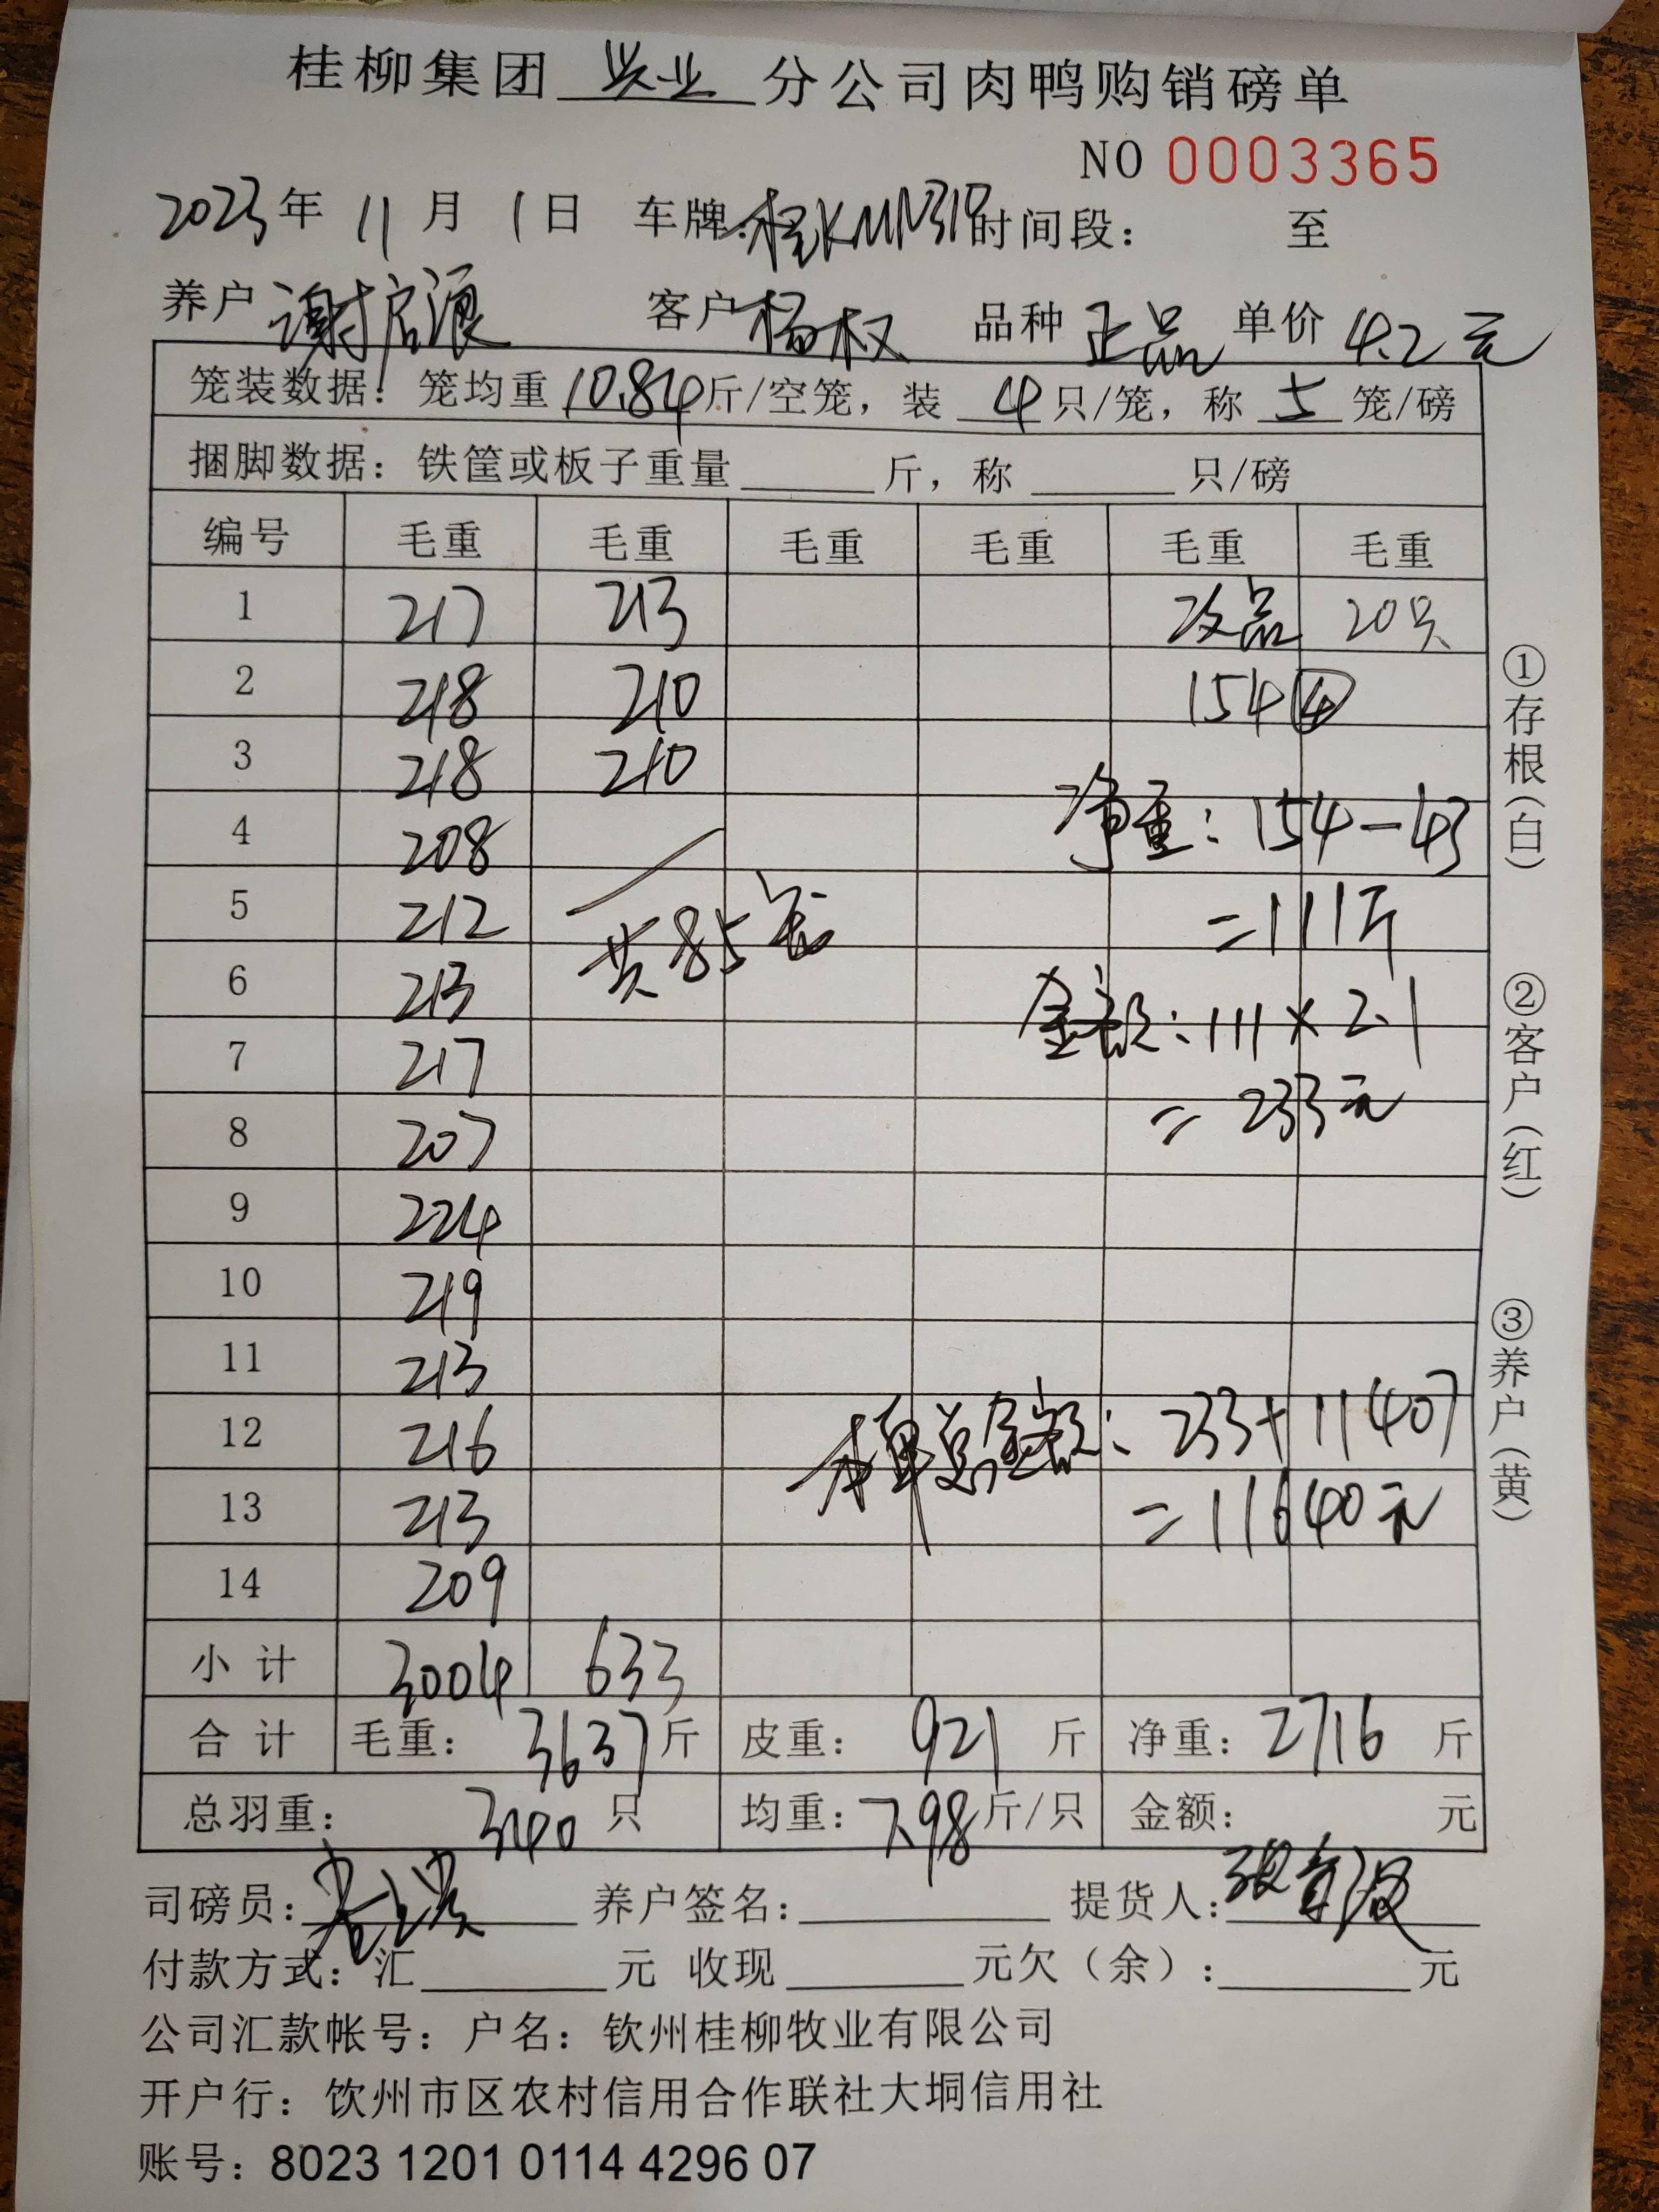 桂柳集团 兴业 分公司肉鸭购销磅单
NO 0003365
2023年 11月 1日 车牌:桂KMN319 时间段: 至
养户 谢启源 客户 杨权 品种 正品 单价 4.2元
笼装数据:笼均重 10.84 斤/空笼,装 4 只/笼,称 5 笼/磅
捆脚数据:铁筐或板子重量 斤,称 只/磅
编号 毛重 毛重 毛重 毛重 毛重 毛重
1 217 213 次品 20只
2 218 210 154 ④
3 218 210
4 208 净重:154-43
5 212 共85笼 =111斤
6 213 金额:111×2.1
7 217
8 207 =233元
9 224
10 219
11 213
12 216 本单总金额:233+11407
13 213 =11640元
14 209
小计 3004 633
合计 毛重: 3637 斤 皮重: 921 斤 净重: 2716 斤
总羽重: 340 只 均重: 7.98 斤/只 金额: 元
司磅员: 养户签名: 提货人:
付款方式:汇 元 收现 元欠(余): 元
公司汇款帐号:户名:钦州桂柳牧业有限公司
开户行:饮州市区农村信用合作联社大垌信用社
账号:8023 1201 0114 4296 07
①存根(白)
②客户(红)
③养户(黄)